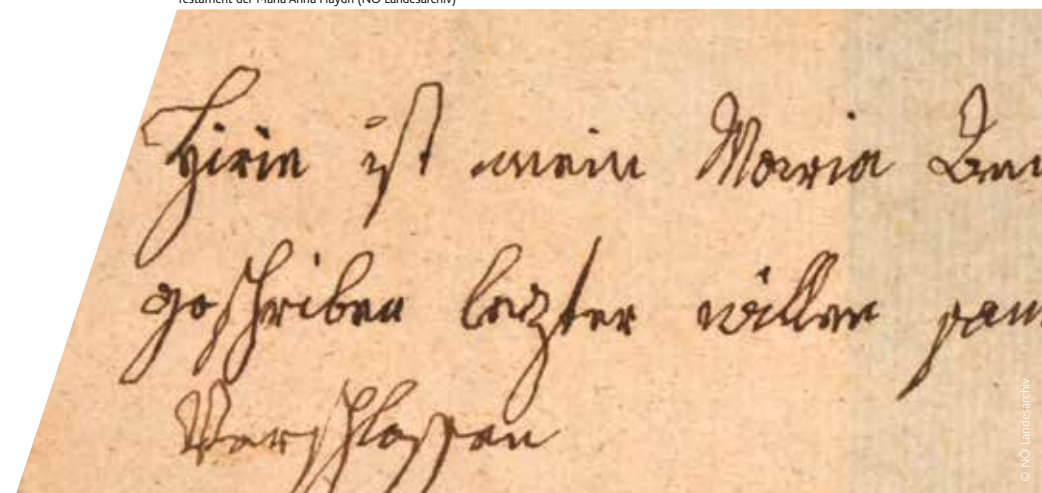 Testament der Maria Anna Haydn (NÖ Landesarchiv)
Hirin ist mein Maria
geschriben lezter willen
Verschlossen
© NÖ Landesarchiv